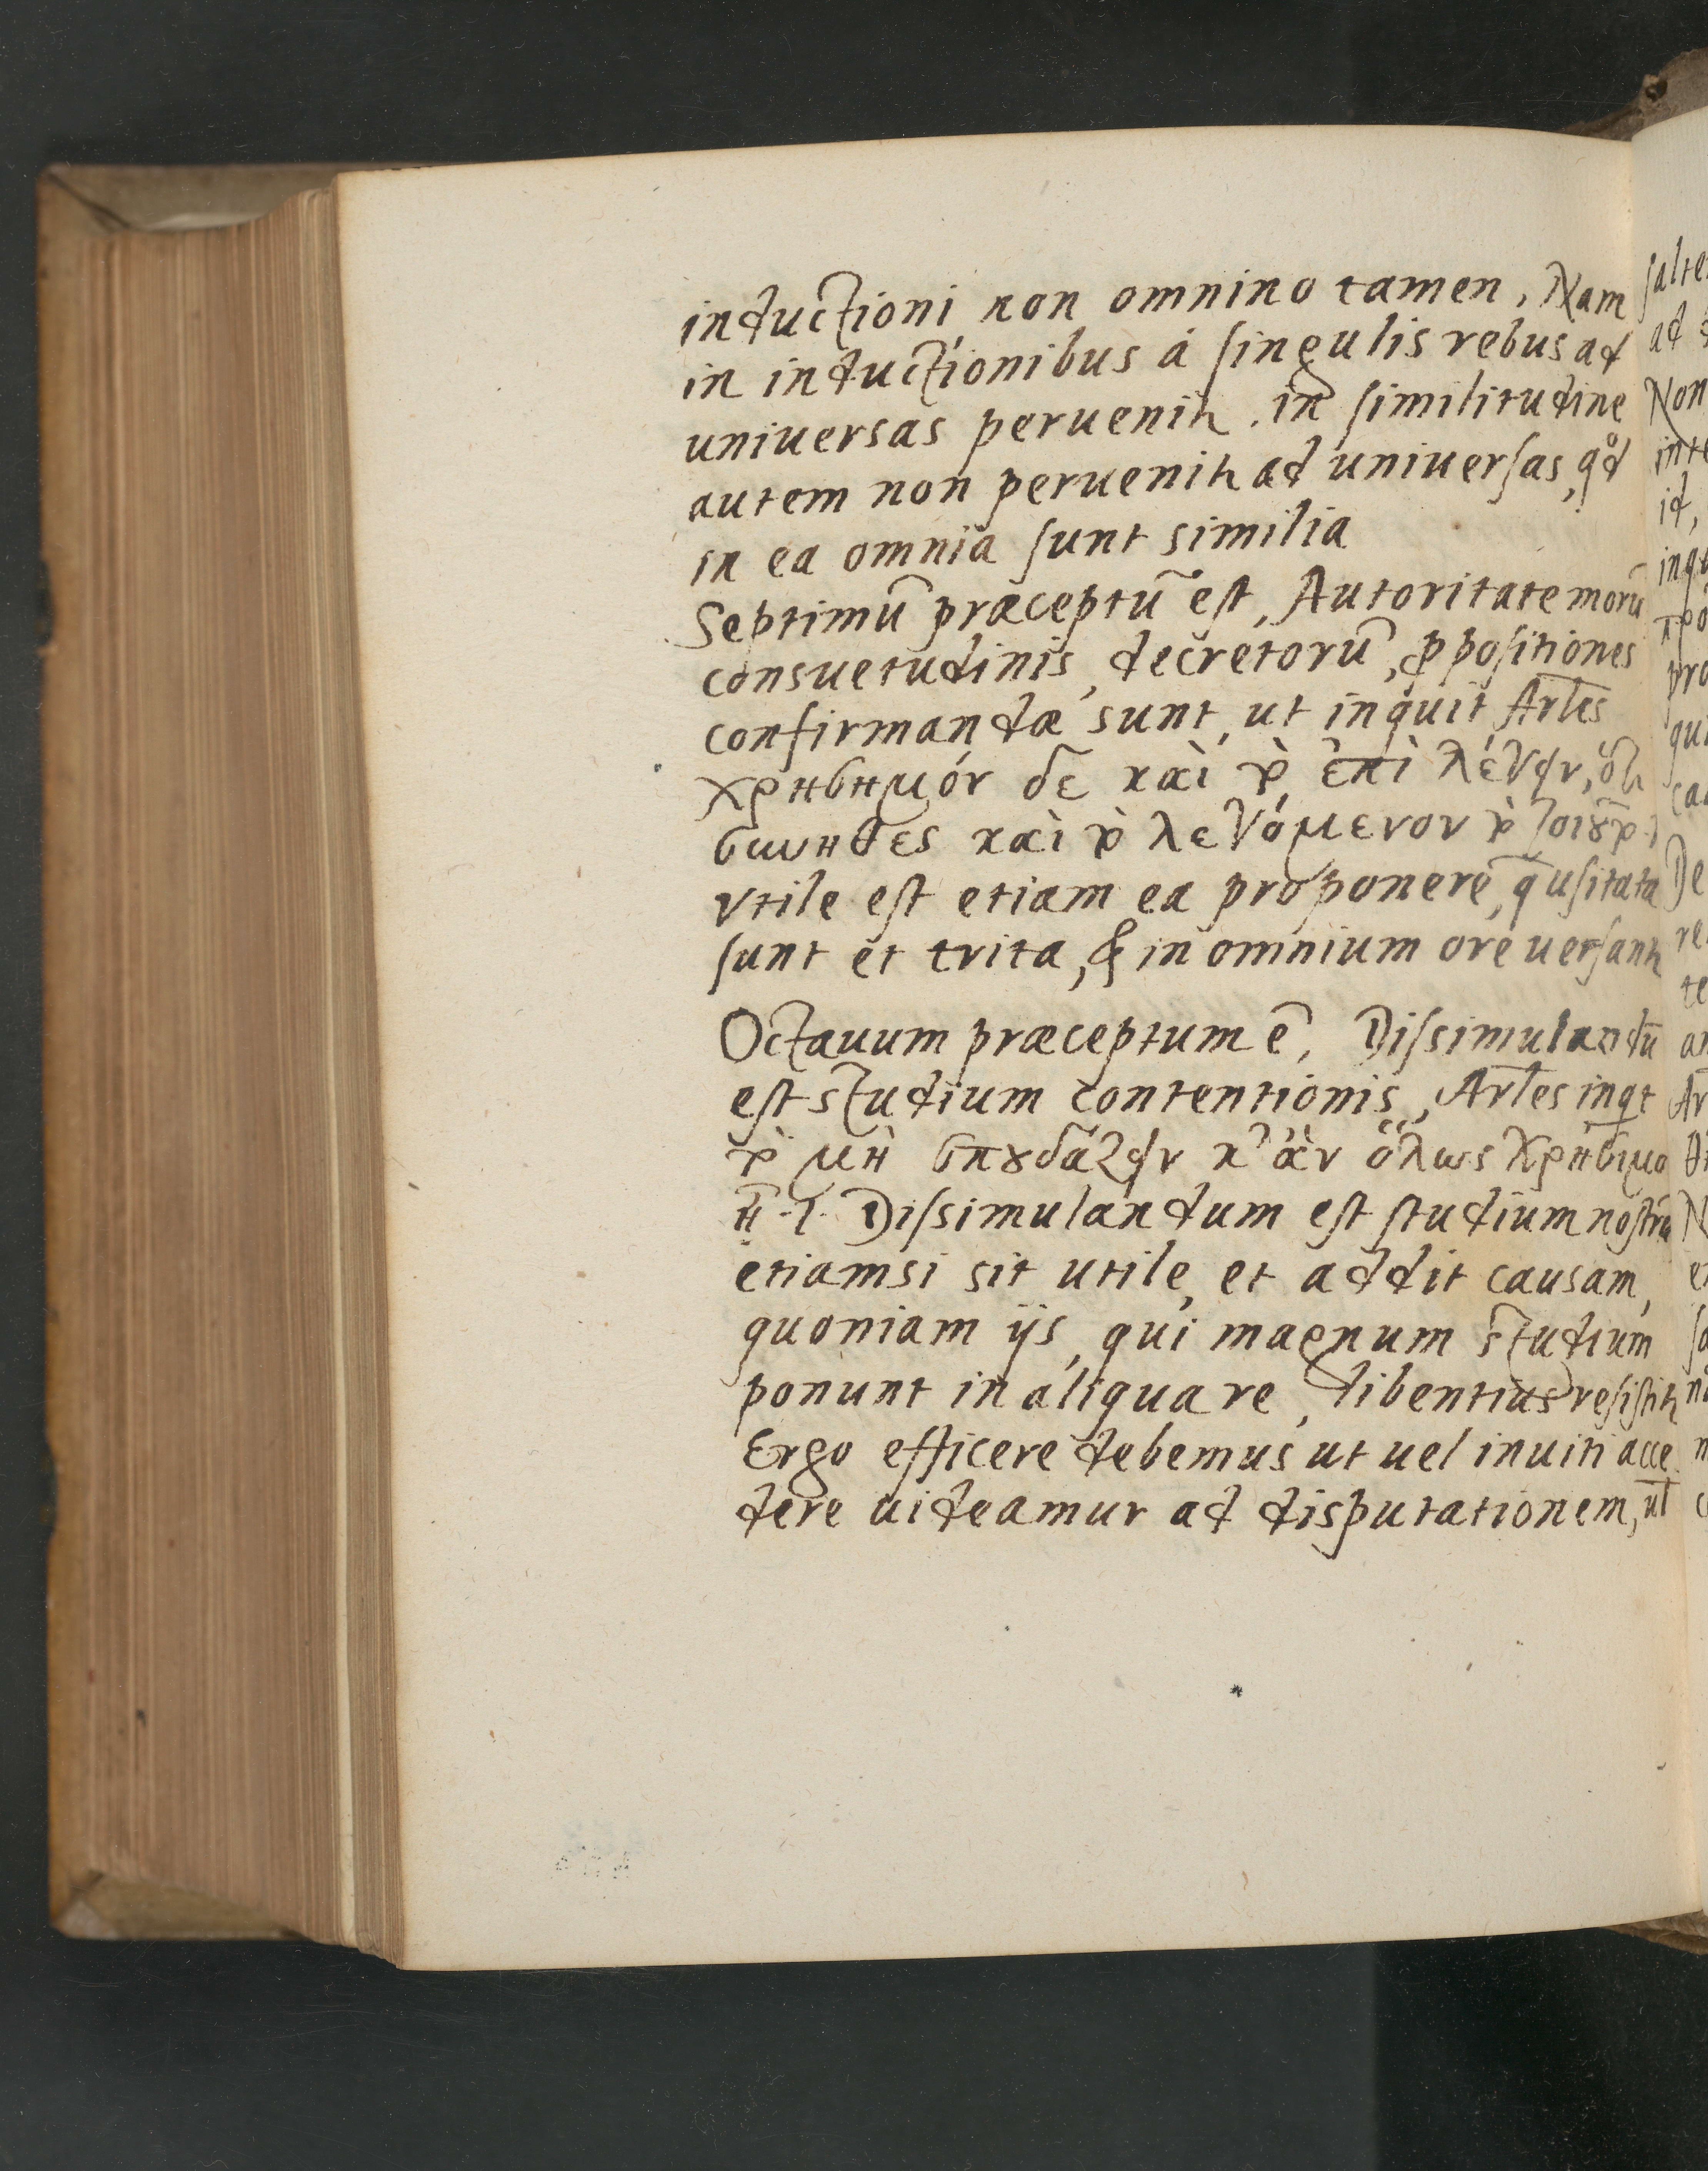 inductioni non omnino tamen, Nam
in inductionibus á singulis rebus ad
universas peruenitr. in similitudine
autem non peruenitr ad uniuersas, qd
in ea omnia sunt similia
Septimū præceptū est, Autoritate morū
consuetudinis, decretorū, ppositiones
confirmandæ sunt, ut inquit Arles
χρησημόν δε καὶ τὸ ἐπὶ λέγειν, ὅτι
συνηθες καὶ τὸ λεγόμενον τὸ τοιοῦτο
vtile est etiam ea proponere, q̄ usitata
sunt et trita, & in omnium ore uersantr
Octauum præceptum ē, Dissimulandū
est studium contentionis, Arles inqt
τὸ μὴ σπουδάζειν κ' ἂν ὅλως χρήσιμο
ῃ̄ .i. Dissimulandum est studium nostrū
etiamsi sit utile, et addit causam,
quoniam ijs, qui magnum studium
ponunt in aliqua re, libentius resistitr
Ergo efficere debemus ut uel inuiti acce
dere uideamur ad disputationem, ul
salte
ad
Non
inte
id,
inqu
πρό
pro
qui
ca
De
re
te
ar
Ar
N